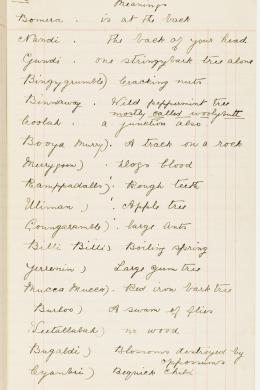 Meanings
Bomera . is at the back
Nandi . The back of your head
Gundi . one stringybark tree alone
Bingygrumble) Cracking nuts
Binnaway . Wild peppermint tree
mostly called woolybutt
Coolah . a junction also
Booya Murry). A track on a rock
Merrygoon) Dogs blood
Ramppadaller). Rough teeth
Uliman ) Apple tree
Goungaramble) large Ants
Billi Billi) Boiling spring
Yerrenin) Large gum tree
Mucca Mucca). Red iron bark tree
Burloo) A swam of flies
Leetallabah) no wood
Bugaldi) Blossoms destroyed by
oppossums
Cyanbii)